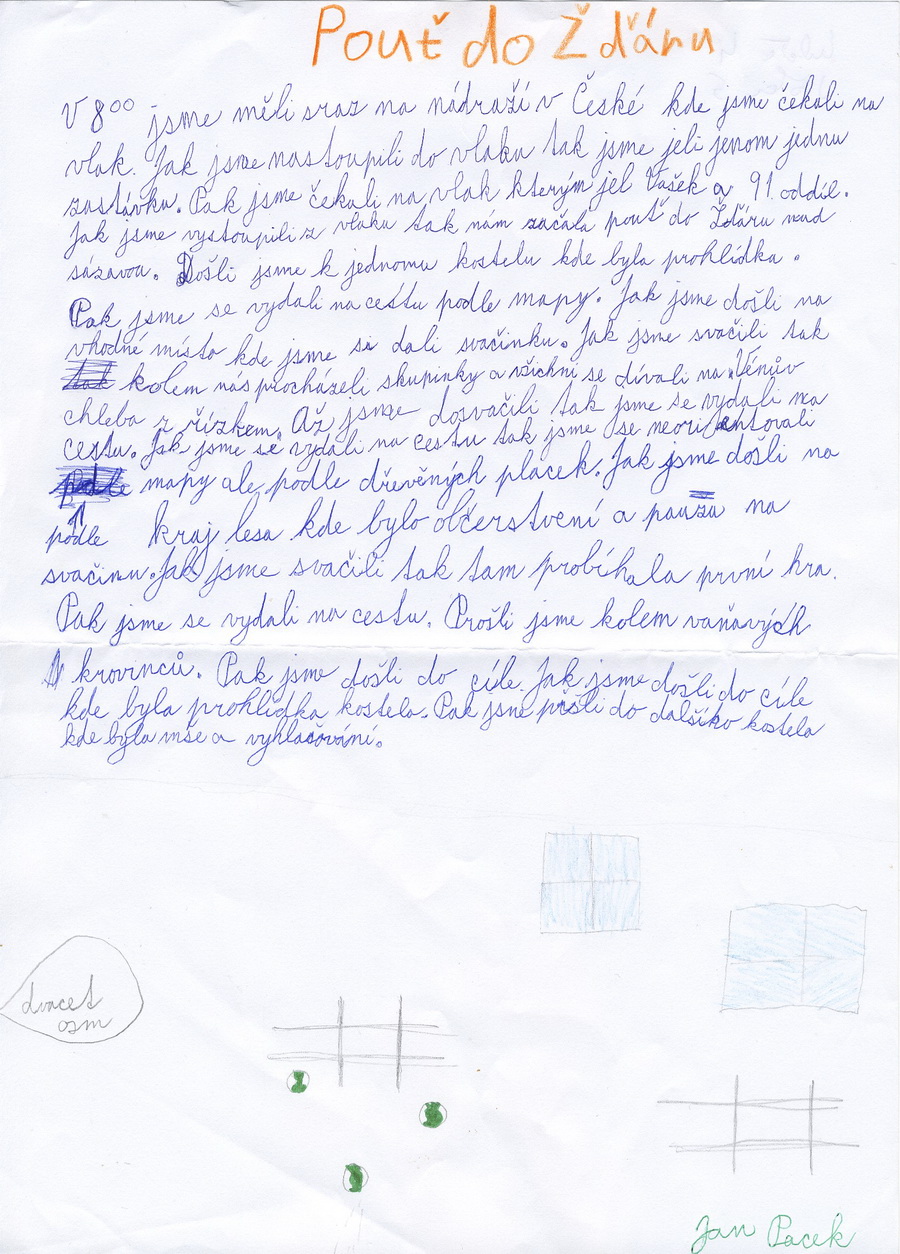 Pouť do Žďáru
V 8⁰⁰ jsme měli sraz na nádraží v České kde jsme čekali na
vlak. Jak jsme nastoupili do vlaku tak jsme jeli jenom jednu
zastávku. Pak jsme čekali na vlak kterým jel Vašek a 91. oddíl.
Jak jsme vystoupili z vlaku tak nám začala pouť do Žďáru nad
sázavou. Došli jsme k jednomu kostelu kde byla prohlídka.
Pak jsme se vydali na cestu podle mapy. Jak jsme došli na
vhodné místo kde jsme si dali svačinku. Jak jsme svačili tak
kolem nás procházeli skupinky a všichni se dívali na Vénův
chleba z řízkem. Až jsme dosvačili tak jsme se vydali na
cestu. Jak jsme se vydali na cestu tak jsme se neorientovali
podle mapy ale podle dřevěných placek. Jak jsme došli na
kraj lesa kde bylo občerstvení a pauza na
svačinu. Jak jsme svačili tak tam probíhala první hra.
Pak jsme se vydali na cestu. Prošli jsme kolem vaňavých
krovinců. Pak jsme došli do cíle. Jak jsme došli do cíle
kde byla prohlídka kostela. Pak jsme přišli do dalšího kostela
kde byla mše a vyhlašování.
dvacet
osm
Jan Pacek